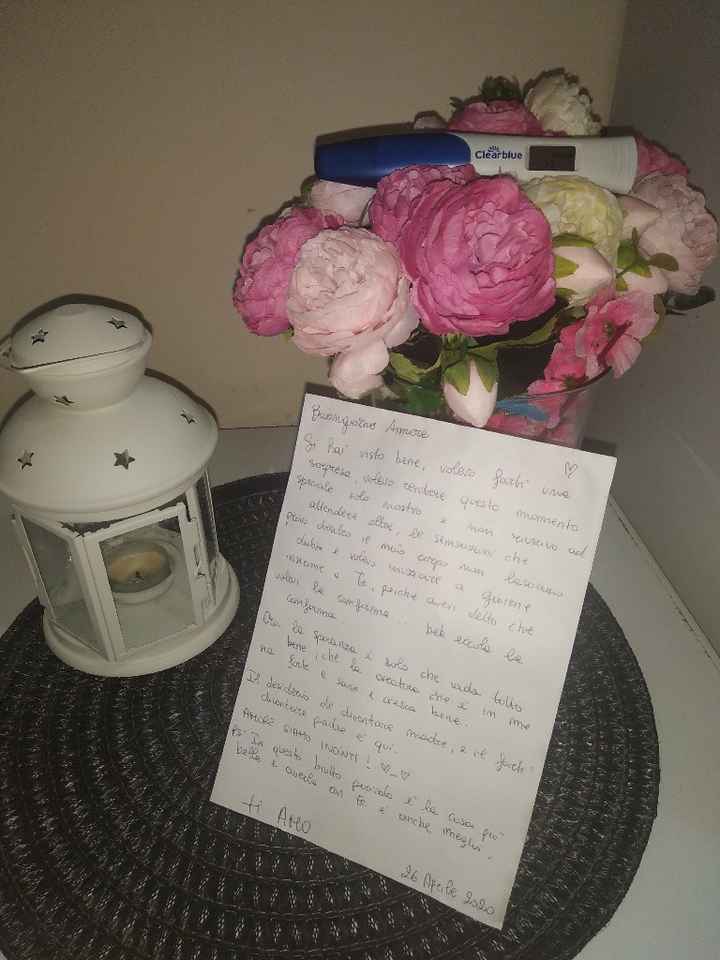 Clearblue
Buongiorno Amore
Si hai visto bene, volevo farti una
sorpresa, volevo rendere questo momento
speciale solo nostro e non riuscivo ad
attendere oltre, le sensazioni che
dava il mio corpo non lasciavano
dubbi e volevo iniziare a gioirne
insieme a Te, perché avevi detto che
volevi la conferma.. beh eccola la
conferma.
Ora la speranza è solo che vada tutto
bene, che la creatura che è in me
sia forte e sana e cresca bene.
Il desiderio di diventare madre, e di farti
diventare padre è qui.
AMORE SIAMO INCINTI!
PS: In questo brutto periodo è la cosa più
bella e averla con Te è anche meglio.
Ti AMO
26 Aprile 2020